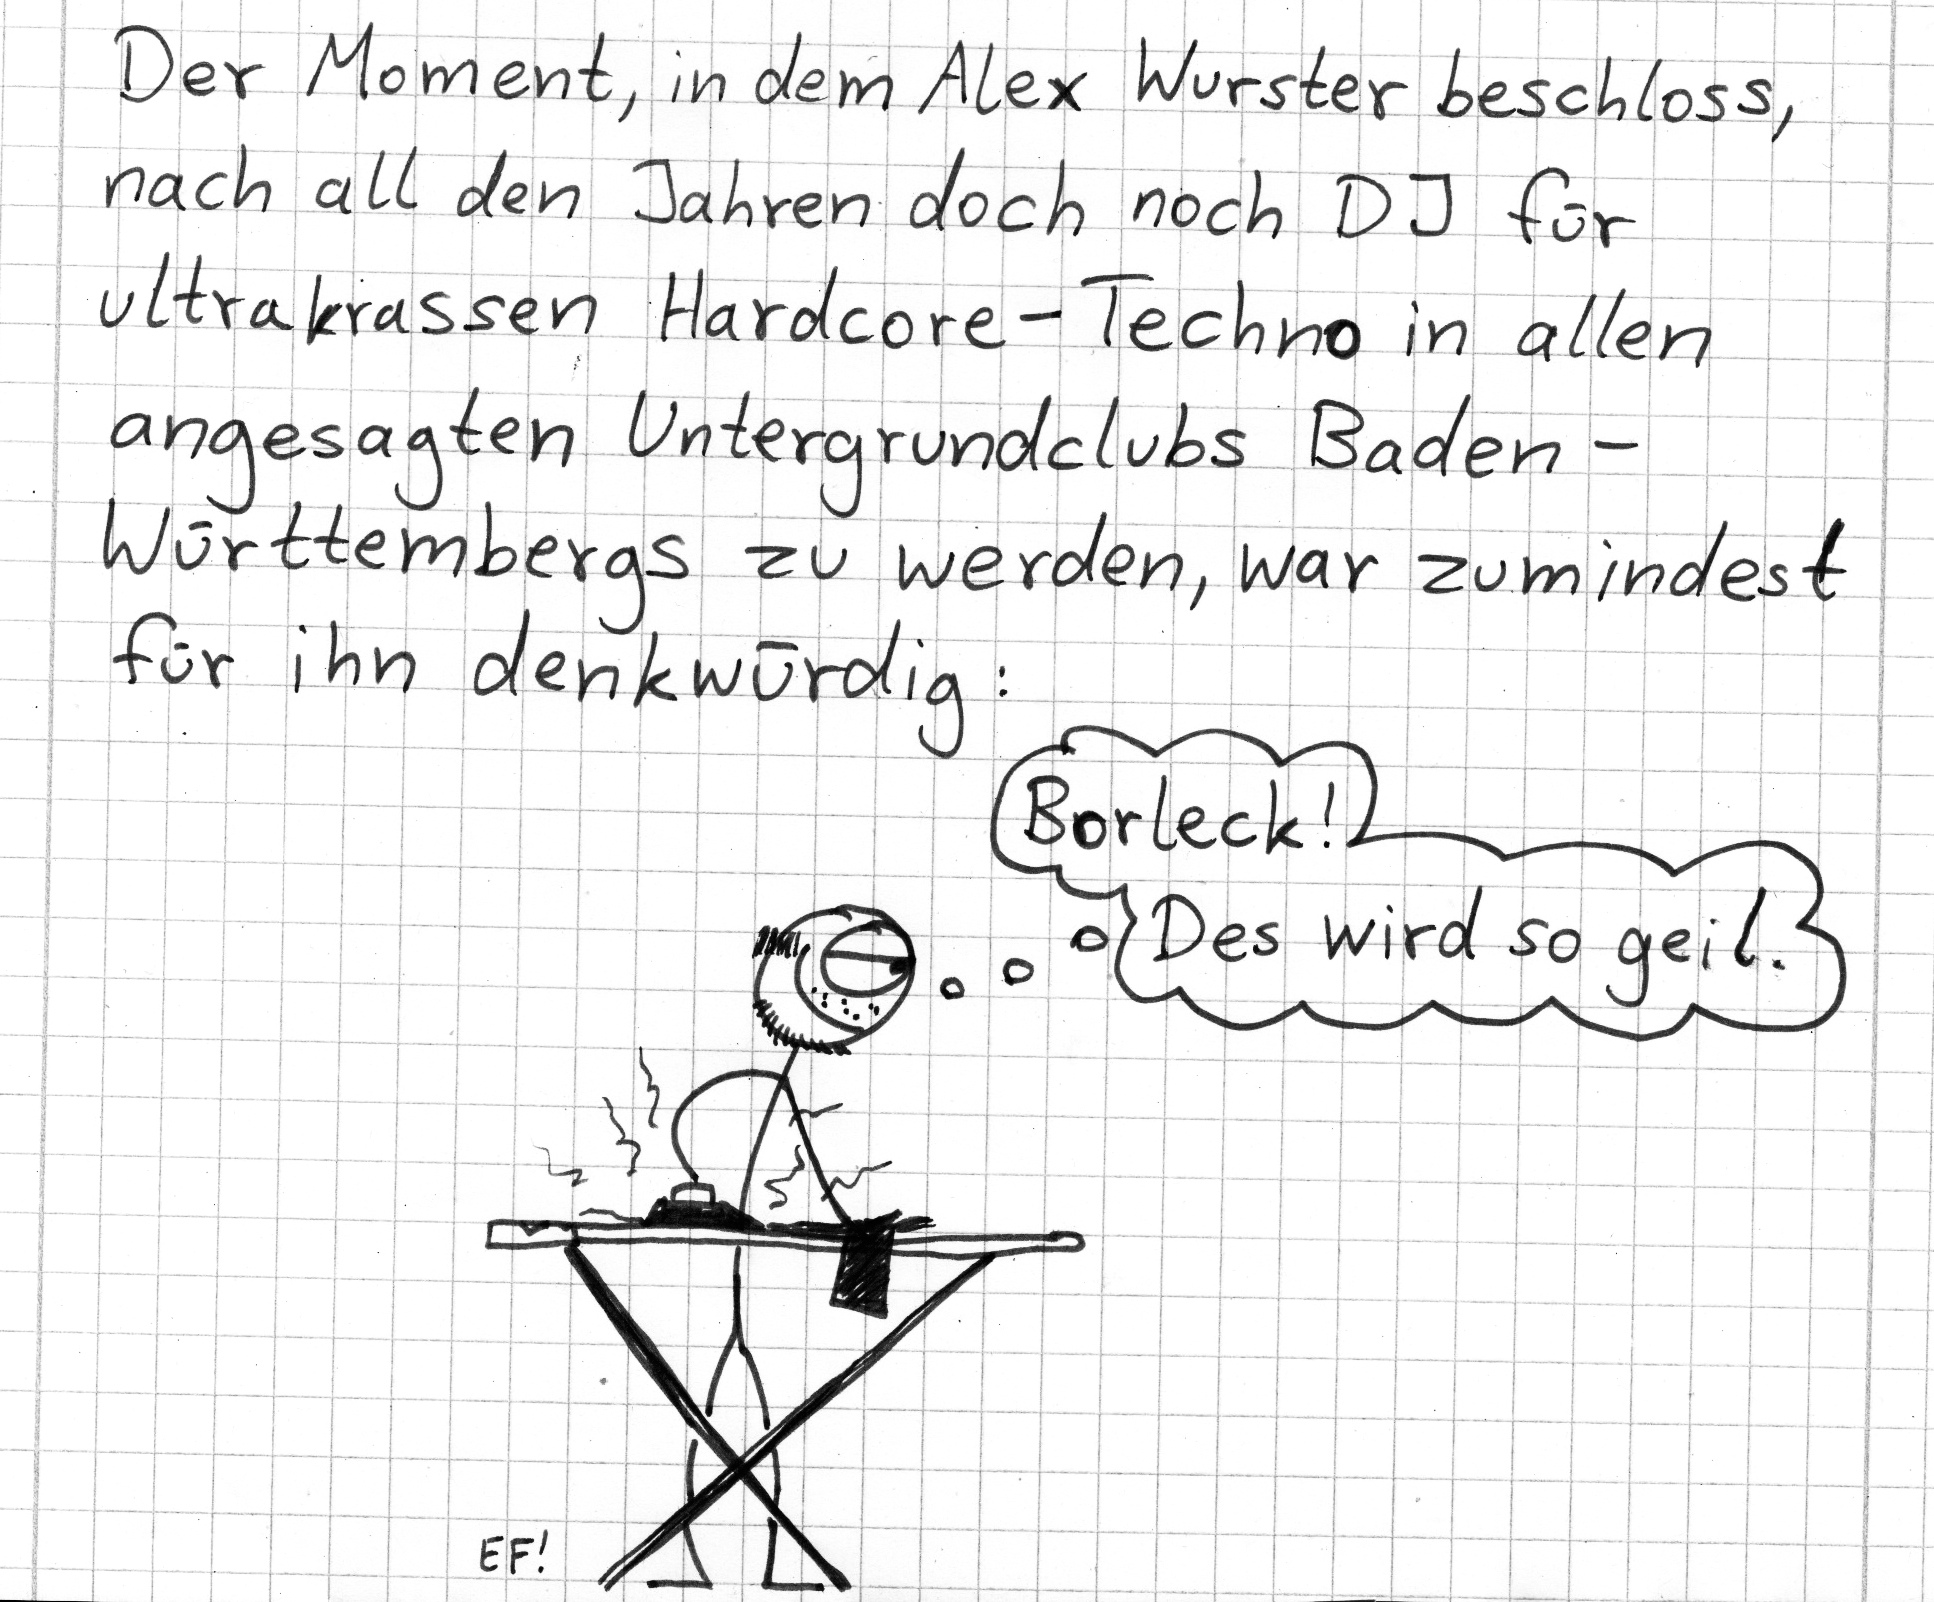 Der Moment, in dem Alex Wurster beschloss,
nach all den Jahren doch noch DJ für
ultrakrassen Hardcore-Techno in allen
angesagten Untergrundclubs Baden-
Württembergs zu werden, war zumindest
für ihn denkwürdig:
Borleck!
Des wird so geil.
EF!